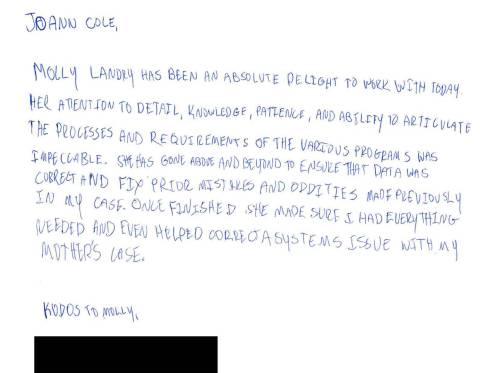 JOANN COLE,
MOLLY LANDRY HAS BEEN AN ABSOLUTE DELIGHT TO WORK WITH TODAY.
HER ATTENTION TO DETAIL, KNOWLEDGE, PATIENCE, AND ABILITY TO ARTICULATE
THE PROCESSES AND REQUIREMENTS OF THE VARIOUS PROGRAMS WAS
IMPECCABLE. SHE HAS GONE ABOVE AND BEYOND TO ENSURE THAT DATA WAS
CORRECT AND FIX PRIOR MISTAKES AND ODDITIES MADE PREVIOUSLY
IN MY CASE. ONCE FINISHED SHE MADE SURE I HAD EVERYTHING
NEEDED AND EVEN HELPED CORRECT A SYSTEMS ISSUE WITH MY
MOTHER'S CASE.
KUDOS TO MOLLY,